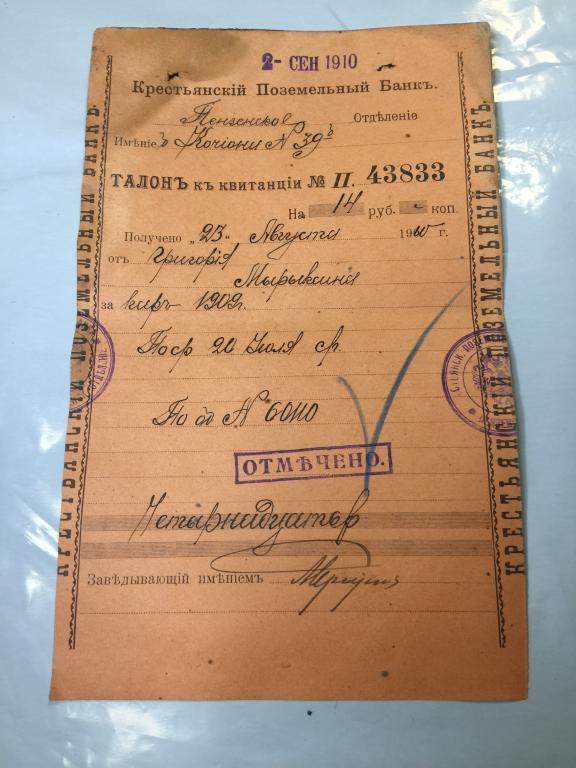 2- СЕН 1910
Крестьянскій Поземельный Банкъ.
Пензенское Отдѣленіе
Имѣніе Кочіони № 39
ТАЛОНЪ къ квитанціи № П. 43833
На 14 руб. - коп.
Получено „23" Августа 1910 г.
отъ Григорія
Мырыксина
за 1909 г.
По ср 20 Іюля ср.
По № 6010
ОТМѢЧЕНО.
Четырнадцать р
Завѣдывающій имѣніемъ
КРЕСТЬЯНСКІЙ ПОЗЕМЕЛЬНЫЙ БАНКЪ.
КРЕСТЬЯНСКІЙ ПОЗЕМЕЛЬНЫЙ БАНКЪ.